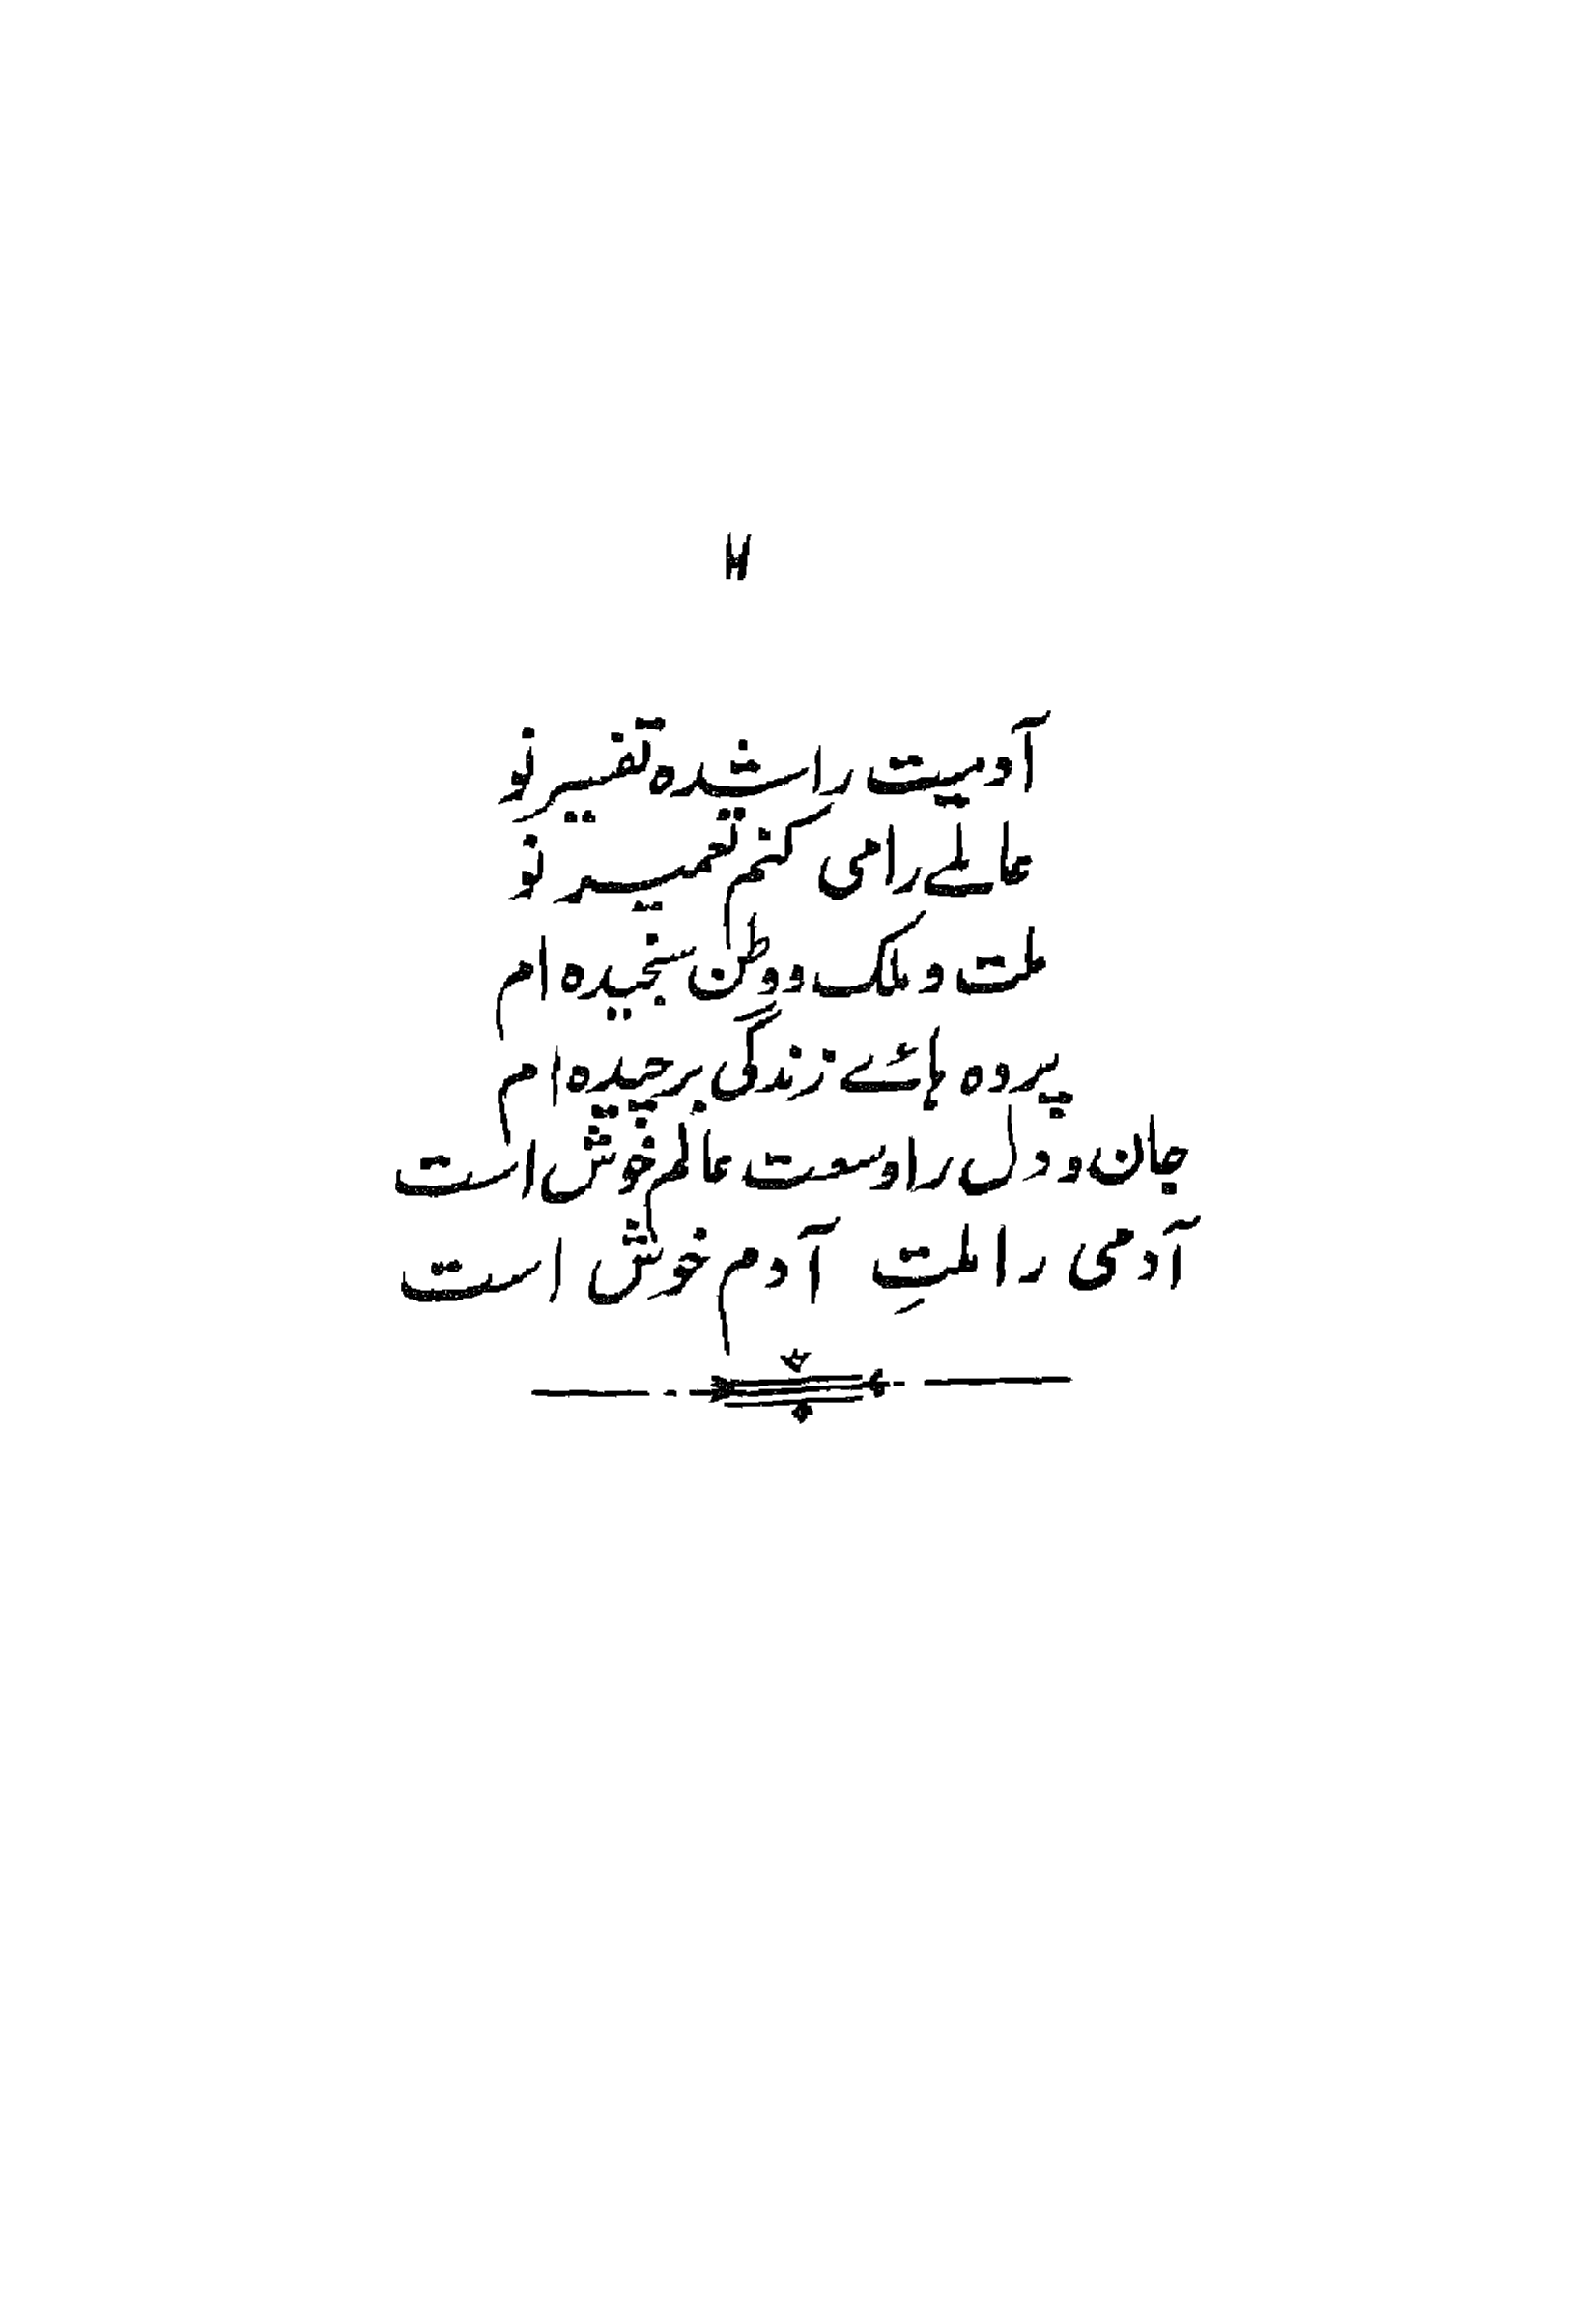 آدمیت را شده تفسیر نو
عالمے را می کنم تعمیر نو
ملت و ملک و وطن سنجیدہ ام
پردہ ہائے زندگی برچیدہ ام
جان و دل را وسعت عالم خوش است
آدمی را ملتِ آدم خوش است